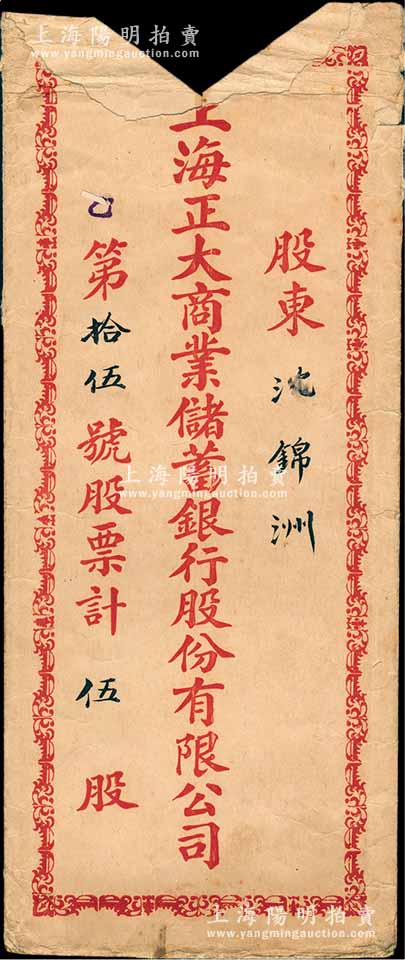 上海陽明拍賣
www.yangmingauction.com
股東 沈錦洲
上海正大商業儲蓄銀行股份有限公司
乙第拾伍號股票計伍股
上海陽明拍賣
www.yangmingauction.com
上海陽明拍賣
www.yangmingauction.com